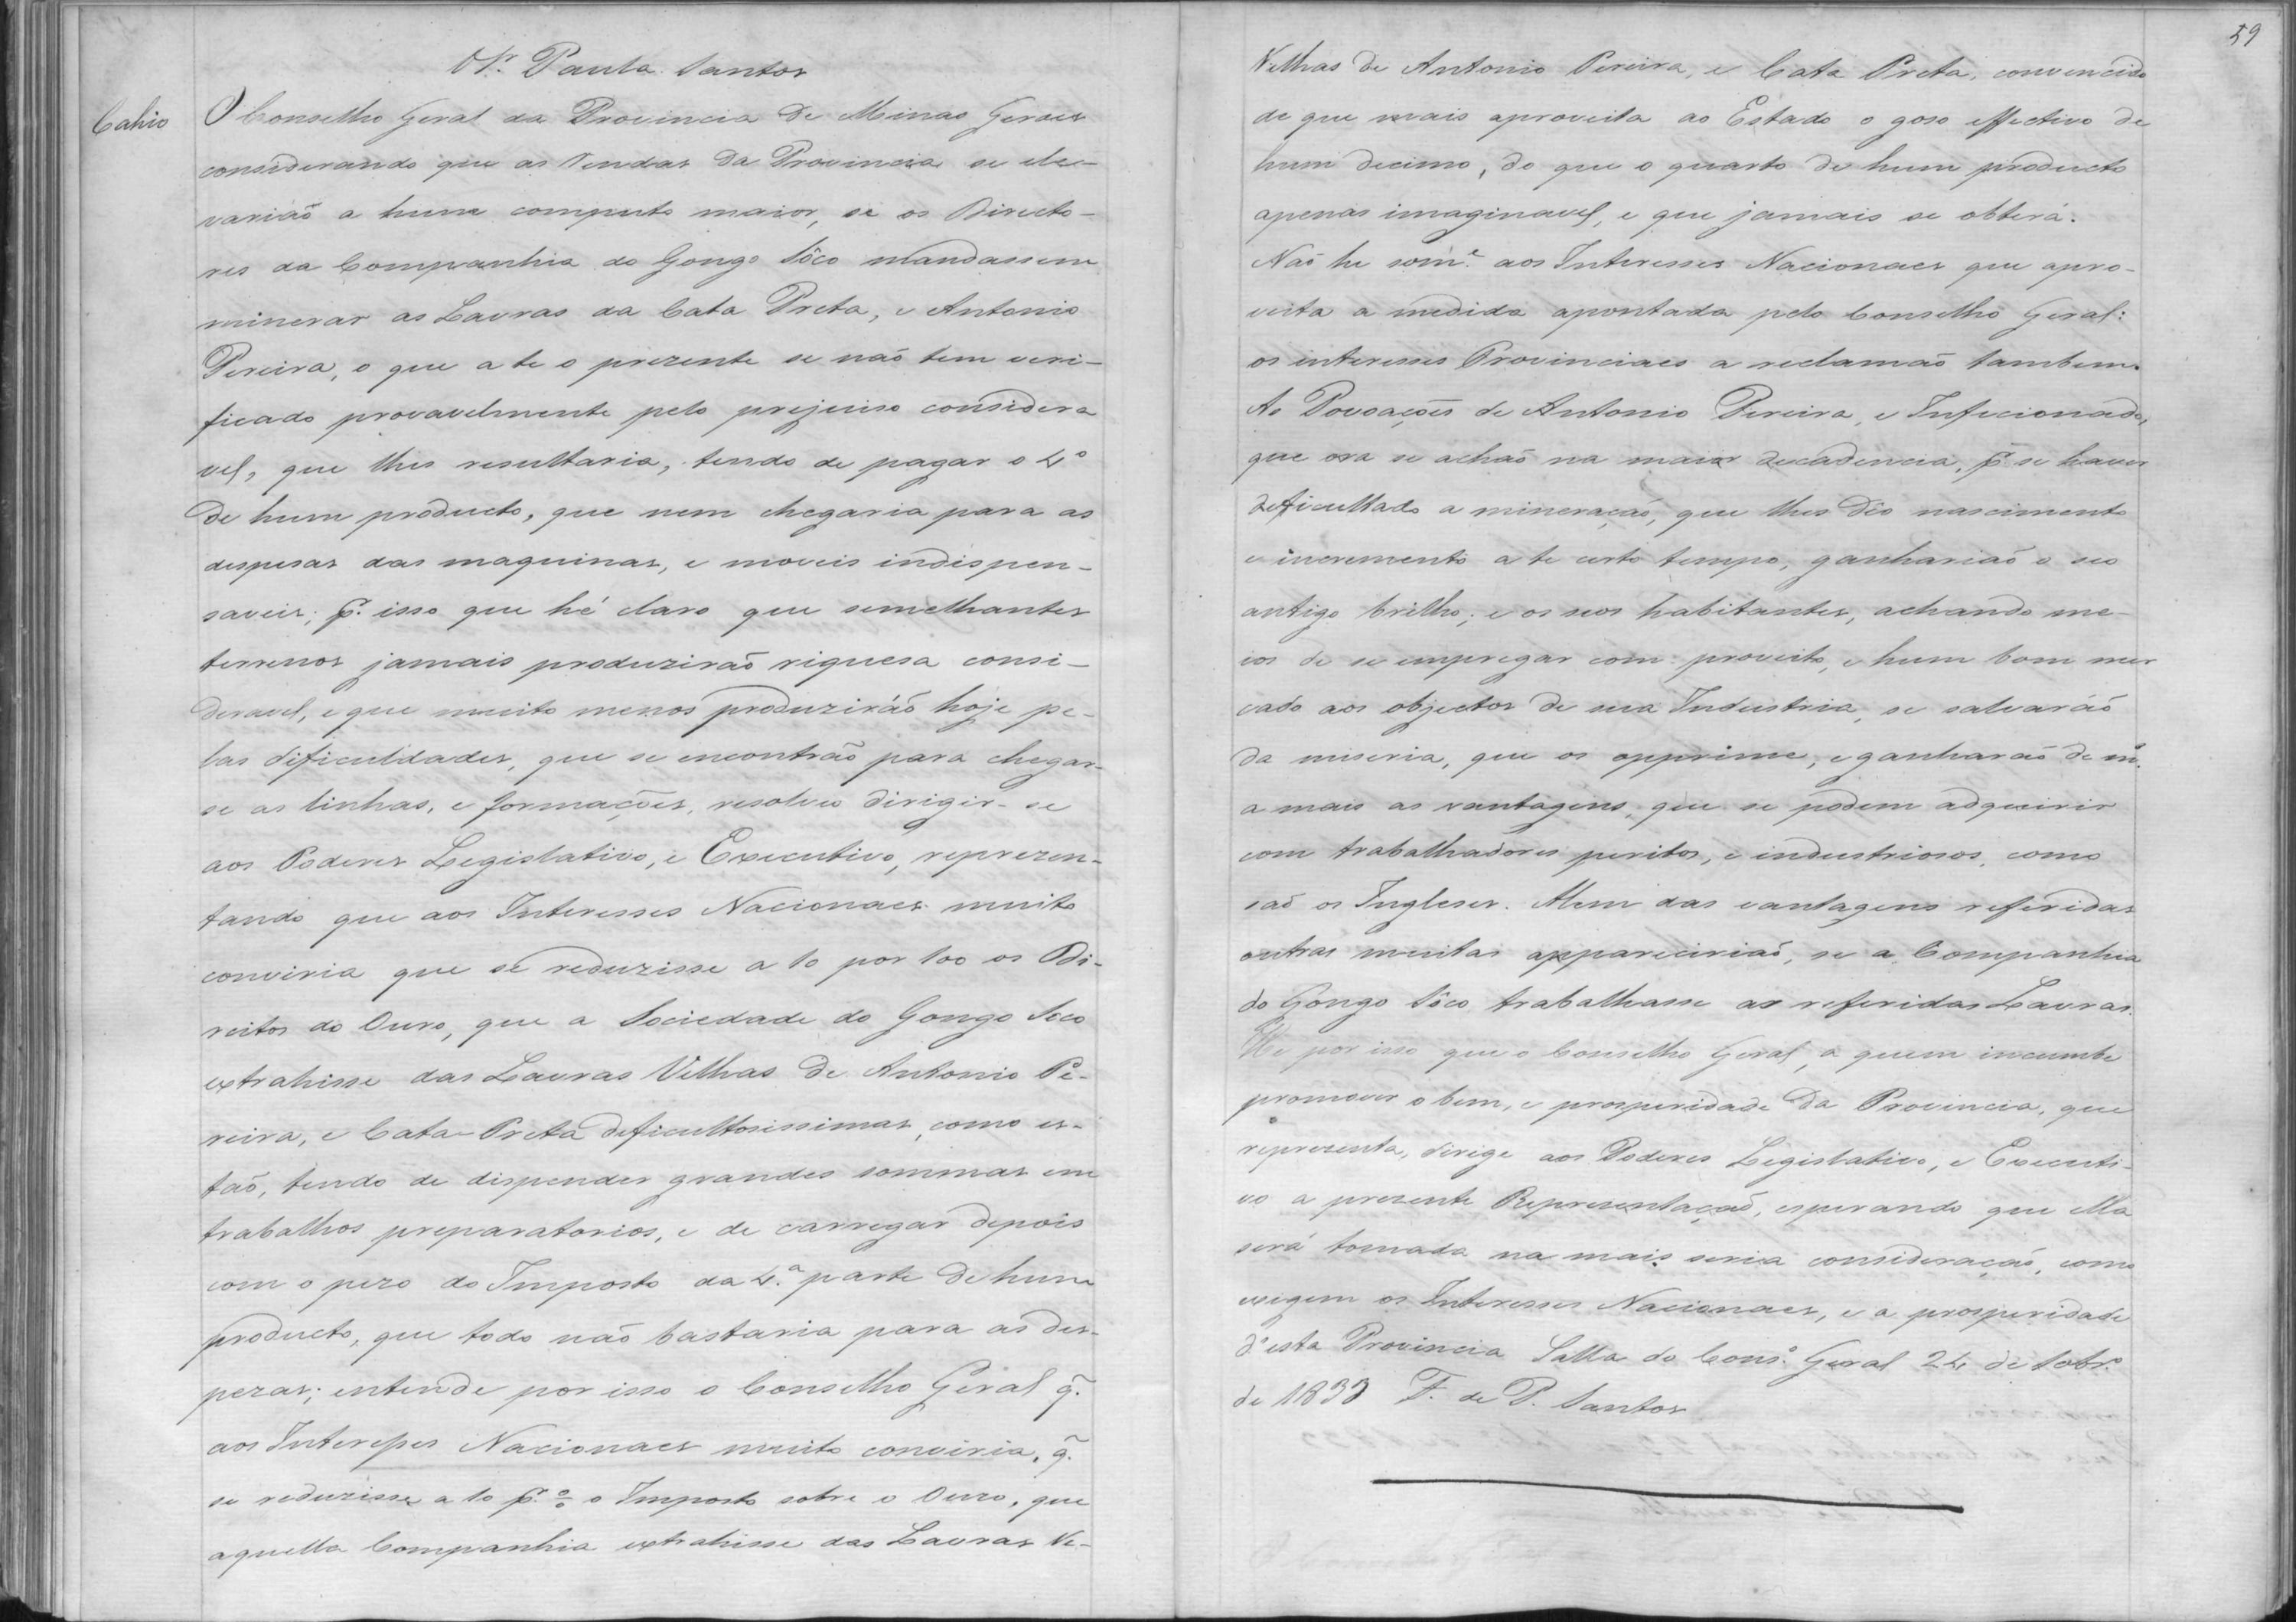 Sr. Paula Santos
Cahio
O Conselho Geral da Provincia de Minas Geraes
considerando que as Rendas da Provincia se ele-
variaõ a hum computo maior, se os Directo-
res da Companhia do Gongo Sôco mandassem
minerar as Lavras da Cata Preta, e Antonio
Pereira, o que a te o prezente se naõ tem veri-
ficado provavelmente pelo prejuiso considera
vel, que lhes resultaria, tendo de pagar o 4º
de hum producto, que nem chegaria para as
despesas das maquinas, e moveis indispen-
saveis; p.r isso que hé claro que semelhantes
terrenos jamais produziraõ riquesa consi-
deravel, e que muito menos produziráõ hoje pe-
las dificuldades, que se encontrão para chegar-
se as linhas, e formações, resolveo dirigir-se
aos Poderes Legislativo, e Executivo, reprezen-
tando que aos Interesses Nacionaes muito
conviria que se reduzisse a 10 por 100 os Di-
reitos do Ouro, que a Sociedade do Gongo Soco
extrahisse das Lavras Velhas de Antonio Pe-
reira, e Cata-Preta deficultosissimas, como es-
taõ, tendo de dispender grandes sommas em
trabalhos preparatorios, e de carregar depois
com o pezo do Imposto da 4.ª parte de hum
producto, que todo não bastaria para as des-
pezas; entende por isso o Conselho Geral q̃.
aos Interesses Nacionaes muito conviria, q̃.
se reduzisse a 10 p.r % o Imposto sobre o Ouro, que
aquella Companhia extrahisse das Lavras Ve-
59
Velhas de Antonio Pereira, e Cata Preta, convencido
de que mais aproveita ao Estado o goso effectivo de
hum decimo, do que o quarto de hum producto
apenas imaginavel, e que jamais se obterá.
Naõ he som.e aos Interesses Nacionaes que apro-
veita a medida apontada pelo Conselho Geral:
os interesses Provinciaes a reclamaõ tambem.
As Povoações de Antonio Pereira, e Inficionado,
que ora se achaõ na maior decadencia, p.r se haver
deficultado a mineraçaõ, que lhes dêo nascimento
e incremento a te certo tempo, ganhariaõ o seo
antigo brilho; e os seos habitantes, achando me-
ios de se empregar com proveito, e hum bom mer
cado aos objectos de sua Industria, se salvaráõ
da miseria, que os opprime, e ganharaõ de m.
a mais as vantagens, que se podem adquirir
com trabalhadores peritos, e industriosos, como
saõ os Ingleses. Alem das vantagens referidas
outras muitas appareciriaõ, se a Companhia
do Gongo Sôco trabalhasse as referidas Lavras.
He por isso que o Conselho Geral, a quem incumbe
promover o bem, e prosperidade da Provincia, que
reprezenta, dirige aos Poderes Legislativo, e Executi-
vo a prezente Reprezentaçaõ, esperando que ella
será tomada na mais seria consideraçaõ, como
exigem os Interesses Nacionaes, e a prosperidade
d'esta Provincia Salla do Cons.º Geral 24 de
de 1833 F. de P. Santos